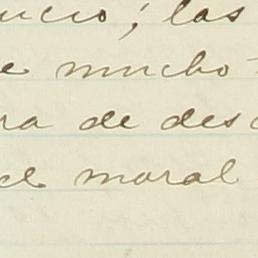 ucio; las
e mucho
ra de des
el moral